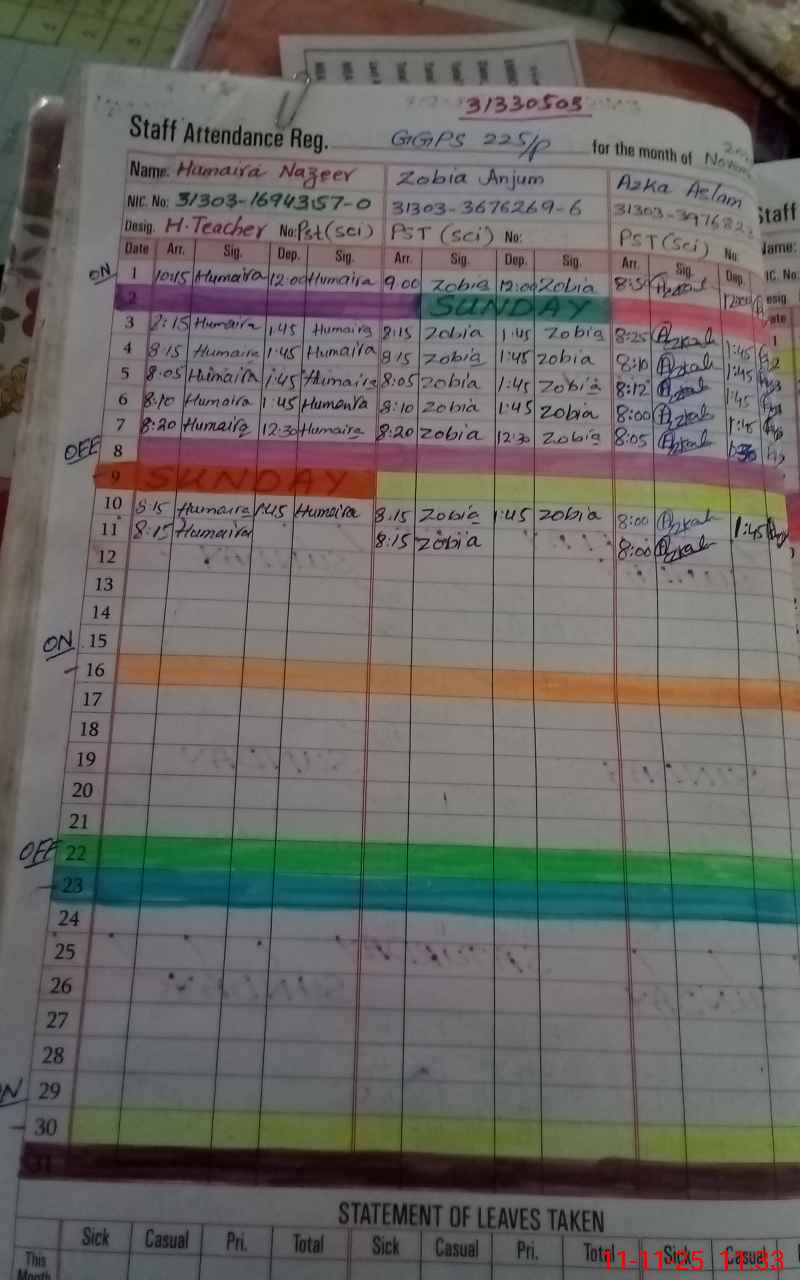 31330505
Staff Attendance Reg. GGPS 225/P for the month of
Name: Humaira Nazeer Zobia Anjum Azka Aslam
NIC. No: 31303-1694357-0 31303-3676269-6
Desig. H.Teacher No: Pst(sci) PST (sci) No: PST (sci) No
Date Arr. Sig. Dep. Sig. Arr. Sig. Dep. Sig. Arr. Sig. Dep.
ON 1 10:15 Humaira 12:00 Humaira 9:00 Zobia 12:00 Zobia
2 SUNDAY
3 8:15 Humaira 1:45 Humaira 8:15 Zobia 1:45 Zobia 8:25 Azkah 1:45
4 8:15 Humaira 1:45 Humaira 8:15 Zobia 1:45 Zobia 8:10 Azkah 1:45
5 8:05 Humaira 1:45 Humaira 8:05 Zobia 1:45 Zobia 8:12 Azkah 1:45
6 8:10 Humaira 1:45 Humaira 8:10 Zobia 1:45 Zobia 8:00 Azkah 1:45
7 8:20 Humaira 12:30 Humaira 8:20 Zobia 12:30 Zobia 8:05 Azkah
OFF 8
9 SUNDAY
10 8:15 Humaira 1:45 Humaira 8:15 Zobia 1:45 Zobia 8:00 Azkah 1:45
11 8:15 Humaira 8:15 Zobia 8:00 Azkah
12
13
14
ON 15
16
17
18
19
20
21
OFF 22
23
24
25
26
27
28
29
30
31
STATEMENT OF LEAVES TAKEN
Sick Casual Pri. Total Sick Casual Pri. Total Sick Casual
This
Month
11-11-25 11:33